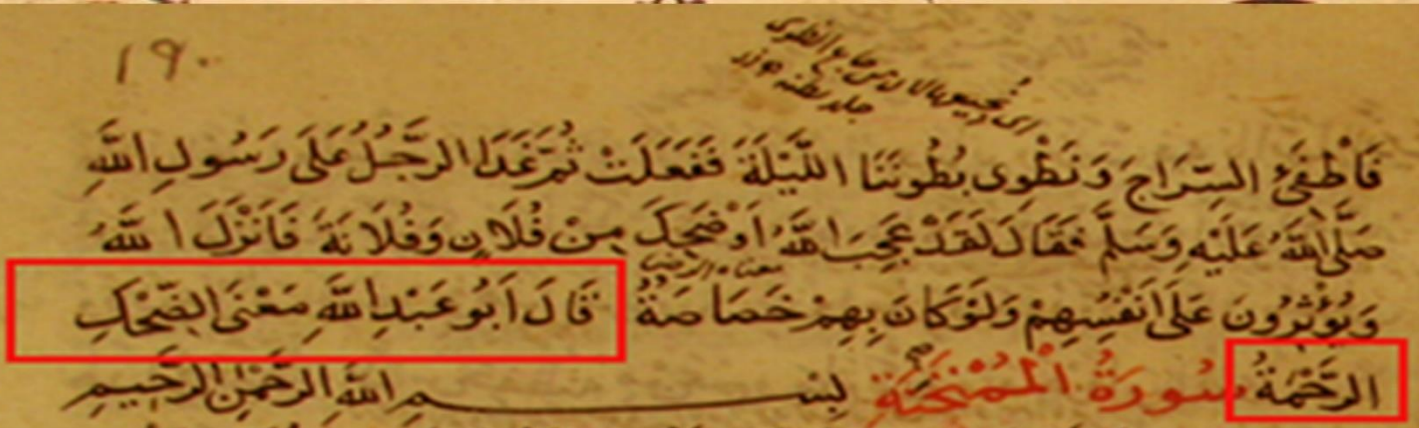 ١٩٠
جلد بطنه
فَاَطْفِئِ السِّرَاجَ وَنَطْوِى بُطُونَنَا اللَّيْلَةَ فَفَعَلَتْ ثُمَّ غَدَا الرَّجُلُ عَلَى رَسُولِ اللَّهِ
صَلَّى اللَّهُ عَلَيْهِ وَسَلَّمَ فَقَالَ لَقَدْ عَجِبَ اللَّهُ اَوْ ضَحِكَ مِنْ فُلَانٍ وَفُلَانَةَ فَاَنْزَلَ اللَّهُ
معناه الرضا
وَيُؤْثِرُونَ عَلَى اَنْفُسِهِمْ وَلَوْ كَانَ بِهِمْ خَصَاصَةٌ قَالَ اَبُو عَبْدِ اللَّهِ مَعْنَى الضَّحِكِ
الرَّحْمَةُ سُورَةُ الْمُمْتَحِنَةِ بِسْمِ اللَّهِ الرَّحْمٰنِ الرَّحِيمِ